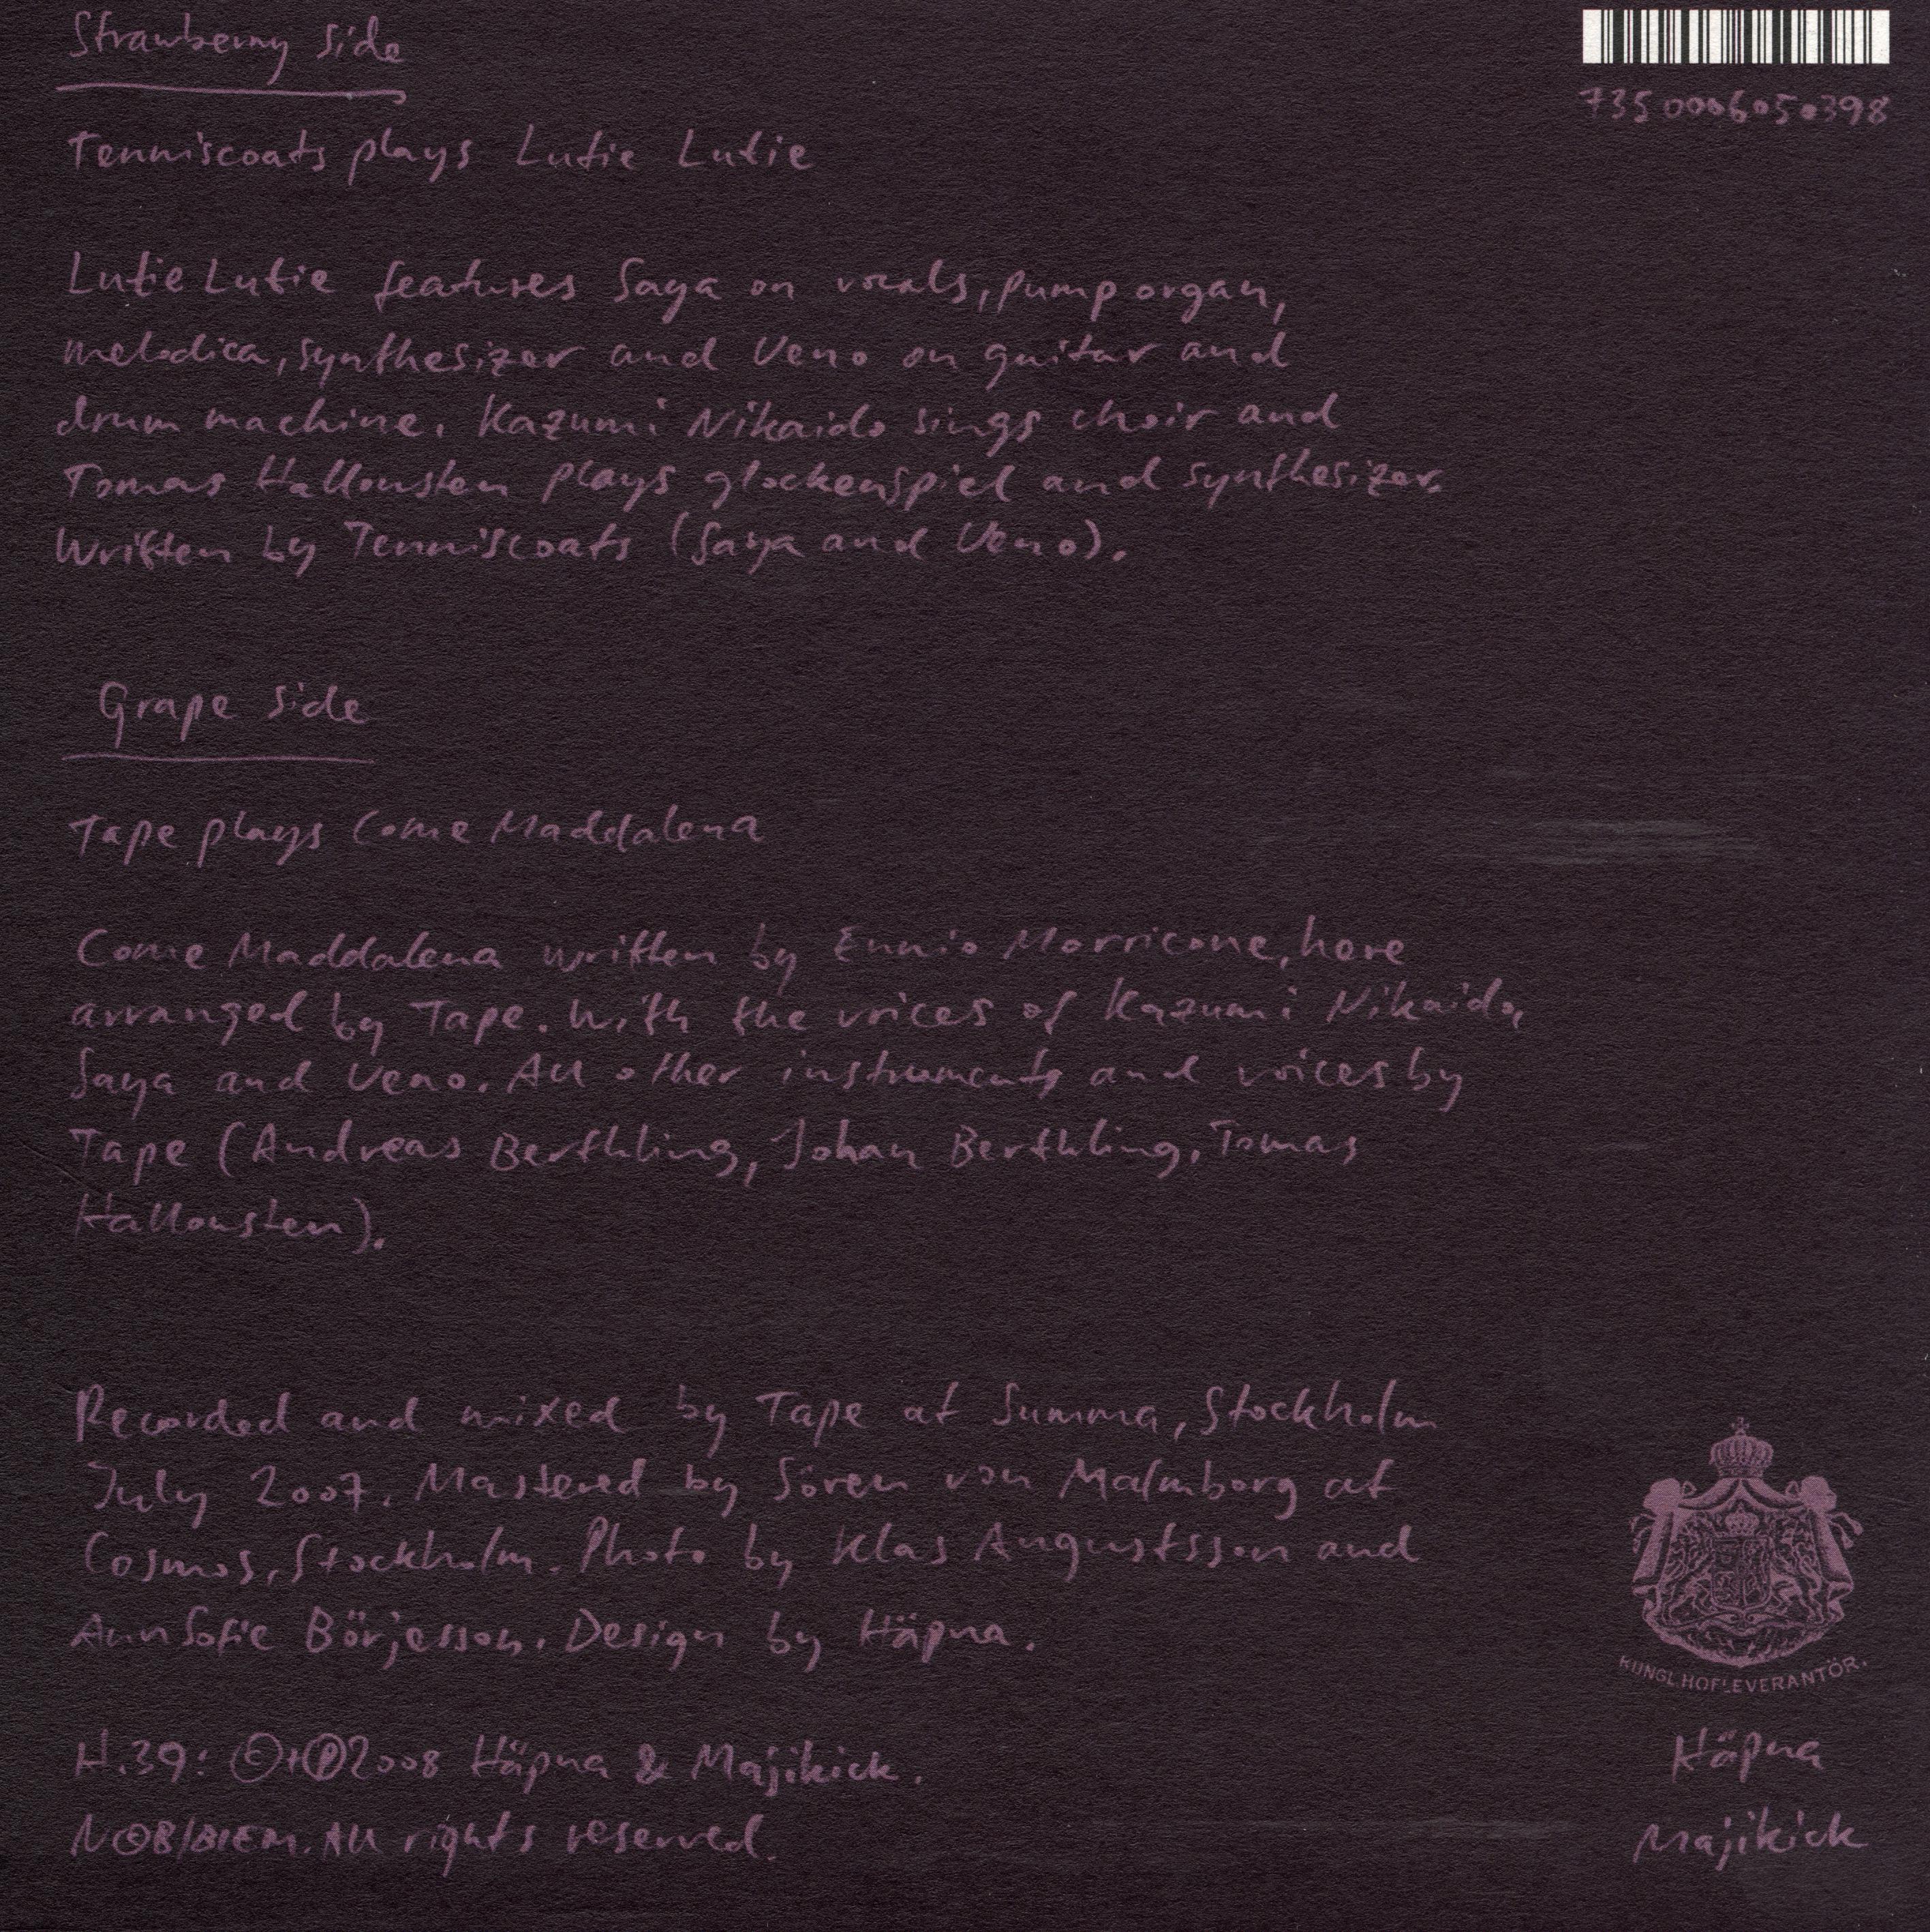 Strawberry Side
7350006050398
Tenniscoats plays Lutie Lutie
Lutie Lutie features Saya on vocals, pump organ,
melodica, synthesizer and Ueno on guitar and
drum machine. Kazumi Nikaido sings choir and
Tomas Hallonsten plays glockenspiel and synthesizer.
Written by Tenniscoats (Saya and Ueno).
Grape Side
Tape plays Come Maddalena
Come Maddalena written by Ennio Morricone, here
arranged by Tape. With the voices of Kazumi Nikaido,
Saya and Ueno. All other instruments and voices by
Tape (Andreas Berthling, Johan Berthling, Tomas
Hallonsten).
Recorded and mixed by Tape at Summa, Stockholm
July 2007. Mastered by Sören von Malmborg at
Cosmos, Stockholm. Photo by Klas Augustsson and
AnnSofie Börjesson. Design by Häpna.
KUNGL. HOFLEVERANTÖR.
H.39: ©+℗2008 Häpna & Majikick.
N©B/BIEM. All rights reserved.
Häpna
Majikick